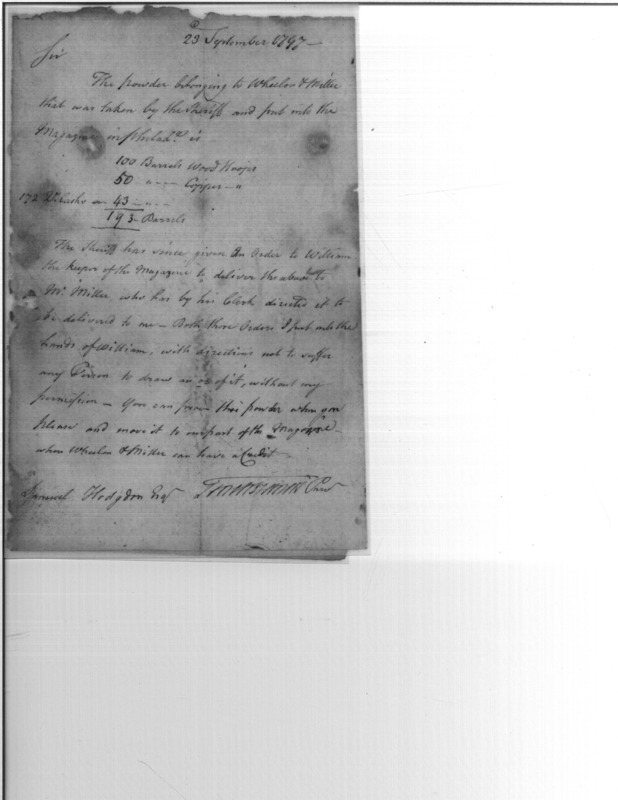 23 September 1797 —
Sir
The powder belonging to Wheelen & Miller
that was taken by the Sheriff and put into the
Magazine in Philad.ª is
100 Barrels Wood Hoops
50 " — — Copper — "
172 Qr Casks — 43 — " —
193 — Barrels
The Sheriff has since given an Order to William
the keeper of the Magazine to deliver the above to
Mr. Miller who has by his Clerk directed it to
be delivered to me — Both those Orders I put into the
hands of William, with directions not to suffer
any Person to draw an oz of it, without my
permission — You can prove this powder when you
please and move it to our part of the Magazine —
when Wheelen & Miller can have a Credit
Samuel Hodgdon Esqr